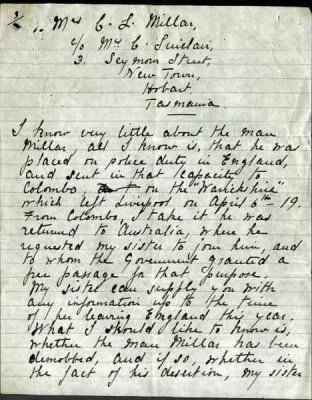 2/ .. Mrs C. L. Millar,
c/o Mrs C. Sinclair,
3. Seymour Street,
New Town,
Hobart,
Tasmania.
I know very little about the man
Millar, all I know is, that he was
placed on police duty in England,
and sent in that capacity to
Colombo, on the "Warickshire"
which left Liverpool on April 6th 19.
From Colombo, I take it he was
returned to Australia, where he
requested my sister to join him, and
to whom the Government granted a
free passage for that purpose.
My sister can supply you with
any information up to the time
of her leaving England this year.
What I should like to know is,
whether the man Millar has been
demobbed, and if so, whether in
the fact of his desertion, my sister